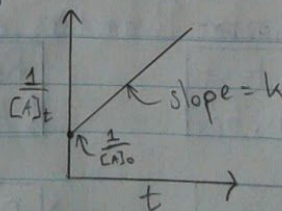 1
[A]t
slope = k
1
[A]o
t